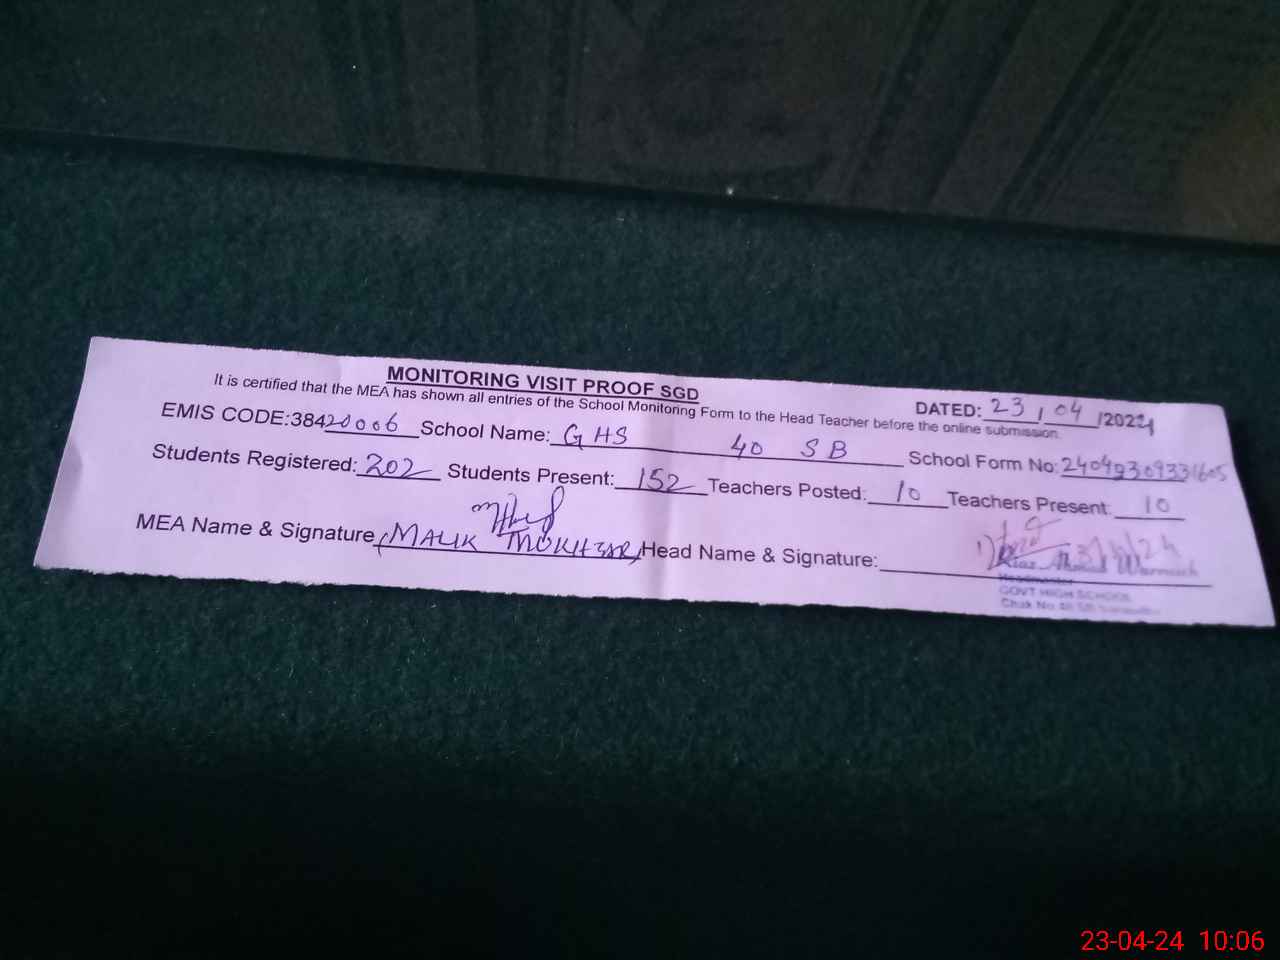 MONITORING VISIT PROOF SGD
It is certified that the MEA has shown all entries of the School Monitoring Form to the Head Teacher before the online submission.
DATED: 23/04/2024
EMIS CODE:38420006 School Name: GHS 40 SB School Form No:
Students Registered: 202 Students Present: 152 Teachers Posted: 10 Teachers Present: 10
MEA Name & Signature (MALIK MOKHTAR) Head Name & Signature:
Headmaster
GOVT HIGH SCHOOL
Chak No
23-04-24 10:06